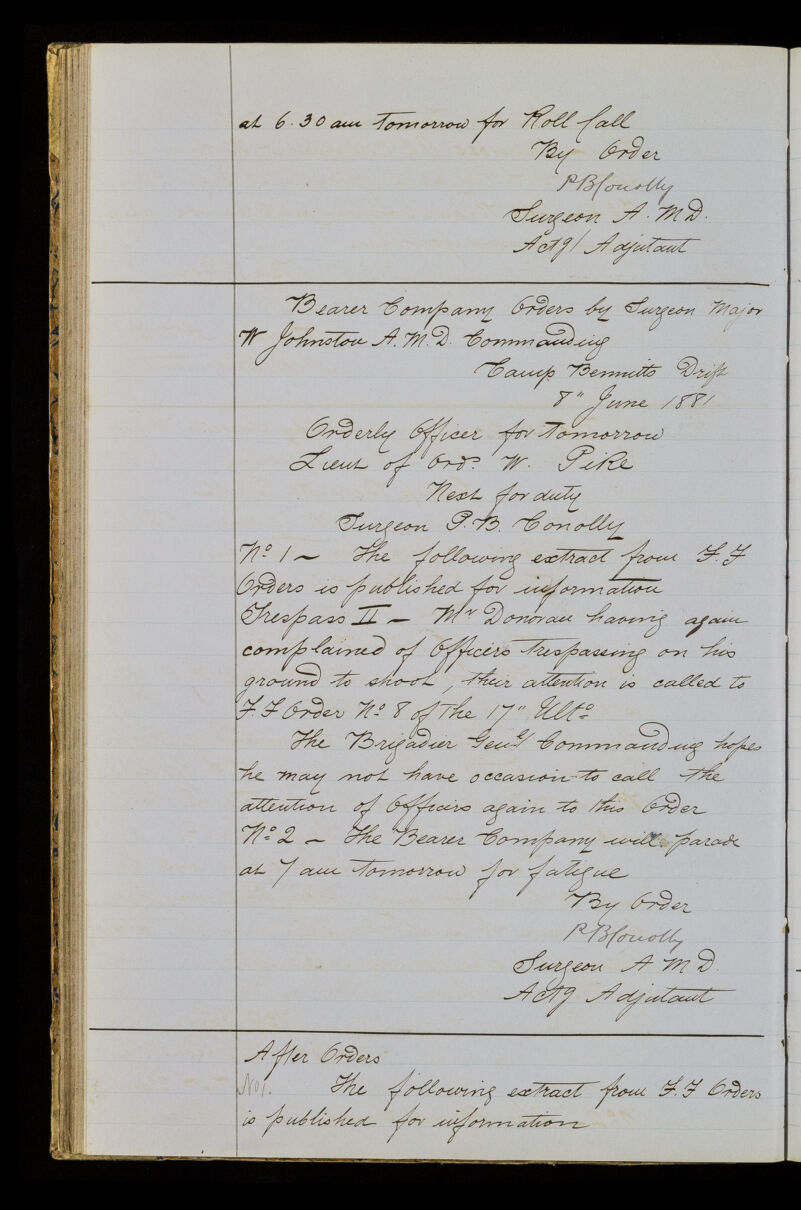 at 6.30 am tomorrow for Roll Call
By Order
P B Conolly
Surgeon A.M.D.
Actg/ Adjutant
Bearer Company Orders by Surgeon Major
W Johnston A.M.D. Commanding
Camp Bennitts Drift
8" June 1881
Orderly Officer for tomorrow
Lieut of Ord: W. Pike
Next for duty
Surgeon P.B. Conolly
No 1 - The following extract from F.F
Orders is published for information
Trespass II - Mr Donovan having again
complained of Officers trespassing on his
ground to shoot, their attention is called to
F.F Order No 8 of The 17" Ulto
The Brigadier Genl/ Commanding hopes
he may not have occasion to call the
attention of Officers again to this Order
No 2 - The Bearer Company will parade
at 7 am tomorrow for fatigue
By Order
P B Conolly
Surgeon A M D.
Actg Adjutant
After Orders
No 1. The following extract from F.F Orders
is published for information